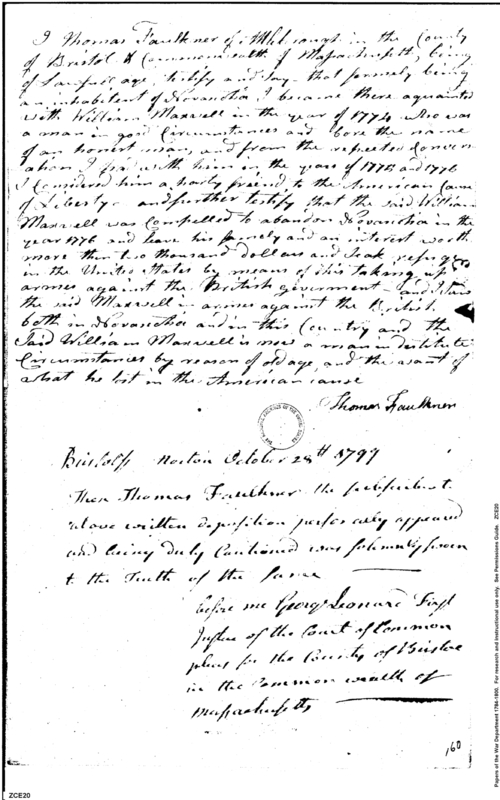 I Thomas Faulkner of Attlebrough in the County
of Bristol & Commonwealth of Massachusetts, being
of Lawfull age, testify and say - that formely being
an inhabitent of Novascotia I became there aquainted
with William Maxwell in the year of 1774 who was
a man in good Circumstances and bore the name
of an honest man, and from the repeeted Conver
ation I had with him in the years of 1775 and 1776
I Considered him a harty freind to the American Cause
of Liberty - and further testify that the said William
Maxwell was Compelled to abandon Novascotia in the
year 1776 and leave his famely and an interest worth
more then two thousand dollars and Seak refuge
in the United States by means of his taking up
armes against the British goverment - and I saw
the said Maxwell in armes against the British
both in Novascotia and in this Country and the
Said William Maxwell is now a man in destitute
Circumstances by reason of old age, and the want of
what he lost in the American cause
Thomas Faulkner
Bristol ss Norton October 28th 1799
Then Thomas Faulkner the subscriber to the
above written deposition personally appeared
and being duly Cautioned was solemnly sworn
to the Truth of the same
before me George Leonard First
Justice of the Court of Common
pleas for the County of Bristol
in the Common wealth of
Massachusetts
160
ZCE20
Papers of the War Department 1784-1800. For research and instructional use only. See Permissions Guide. ZCE20